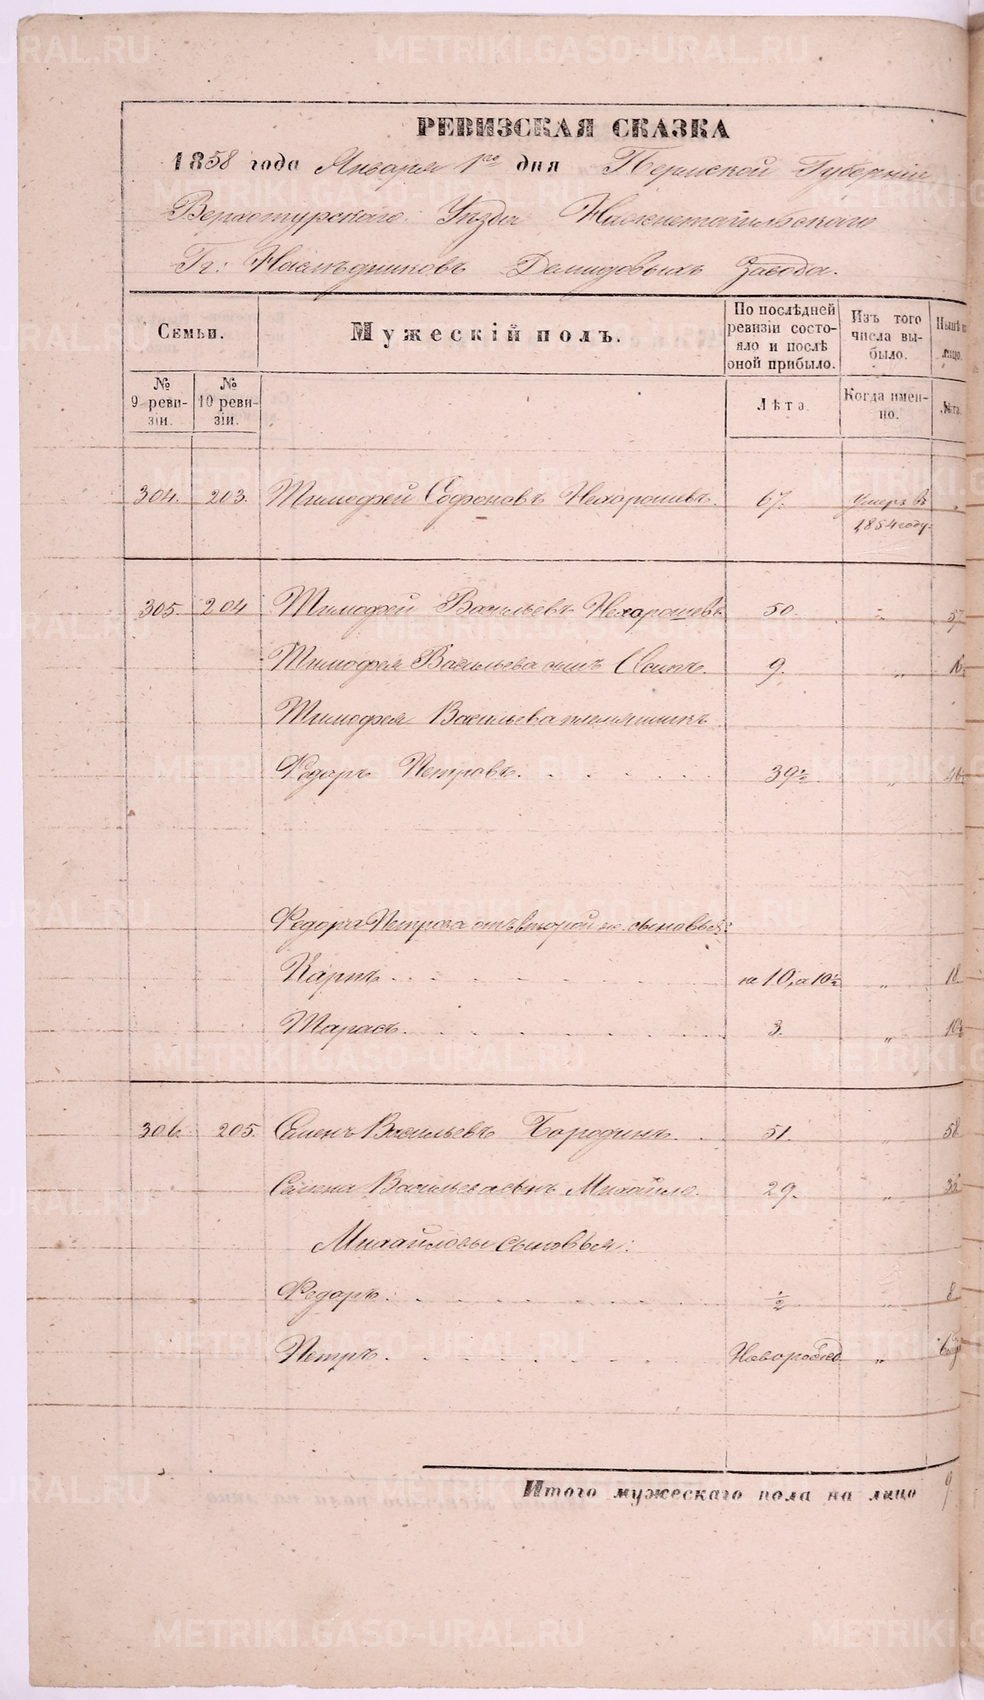 РЕВИЗСКАЯ СКАЗКА
1858 года Января 1го дня Пермской Губерніи
Верхотурскаго Уѣзда Нижнетагильскаго
Гг: Наслѣдниковъ Демидовыхъ завода.
Семьи. Мужескій полъ. По послѣдней ревизіи состояло и послѣ оной прибыло. Изъ того числа выбыло. Нынѣ
лицо.
№ 9 ревизіи. № 10 ревизіи. Лѣта. Когда именно. Лѣта.
304. 203. Тимофей Софоновъ Нехорошевъ. 67. Умеръ въ
1854 году.
305. 204 Тимофей Васильевъ Нехорошевъ 50. " 57
Тимофея Васильева сынъ Осипъ. 9. " 16
Тимофея Васильева племянникъ
Федоръ Петровъ. 39½ " 46
Федора Петрова отъ второй жены сыновья:
Карпъ на 10, а 10½ " 18
Тарасъ. 3. " 10½
306. 205. Семенъ Васильевъ Бородинъ. 51. " 58
Семена Васильева сынъ Михайло. 29. " 36
Михайловы сыновья:
Федоръ. ½ " 8
Петръ. Новорожд. "
Итого мужескаго пола на лицо 9
METRIKI.GASO-URAL.RU